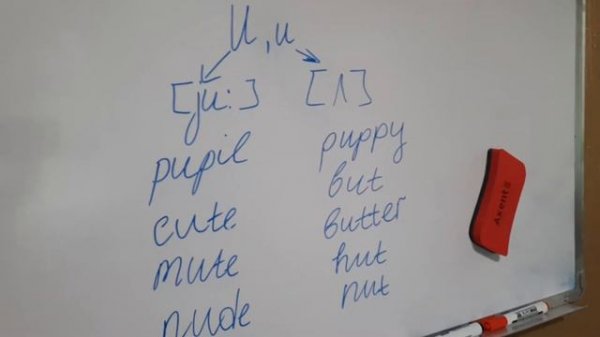 U, u
[ju:] [ʌ]
pupil puppy
cute but
mute butter
nude hut
nut
Axent